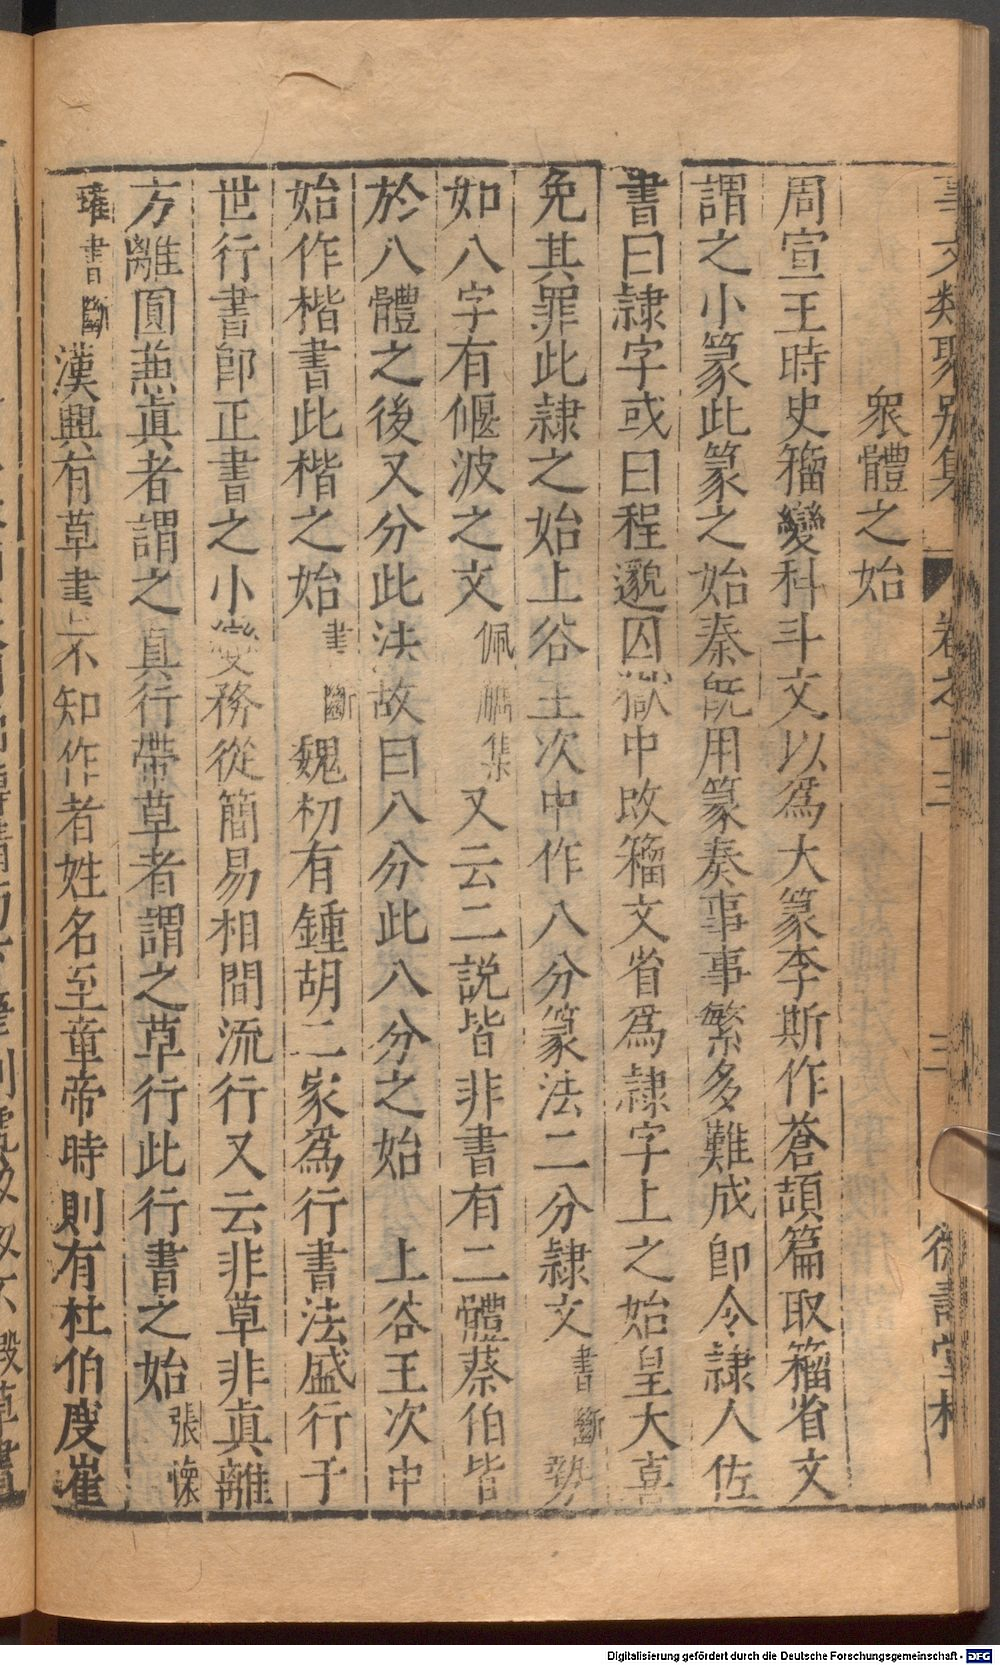 事文類聚别集 卷之十三 三
衆體之始
周宣王時史籀變科斗文以爲大篆李斯作蒼頡篇取籀省文
謂之小篆此篆之始秦旣用篆奏事事繁多難成即令隷人佐
書曰隷字或曰程邈囚獄中改籀文省爲隷字上之始皇大喜
免其罪此隷之始上谷王次中作八分篆法二分隷文書斷勢
如八字有偃波之文佩觿集又云二説皆非書有二體蔡伯皆
於八體之後又分此法故曰八分此八分之始 上谷王次中
始作楷書此楷之始書斷魏初有鍾胡二家爲行書法盛行于
世行書卽正書之小變務從簡易相間流行又云非草非眞離
方離圓兼眞者謂之真行帶草者謂之草行此行書之始張懷
瓘書斷漢興有草書不知作者姓名至章帝時則有杜伯度崔
Digitalisierung gefördert durch die Deutsche Forschungsgemeinschaft - DFG